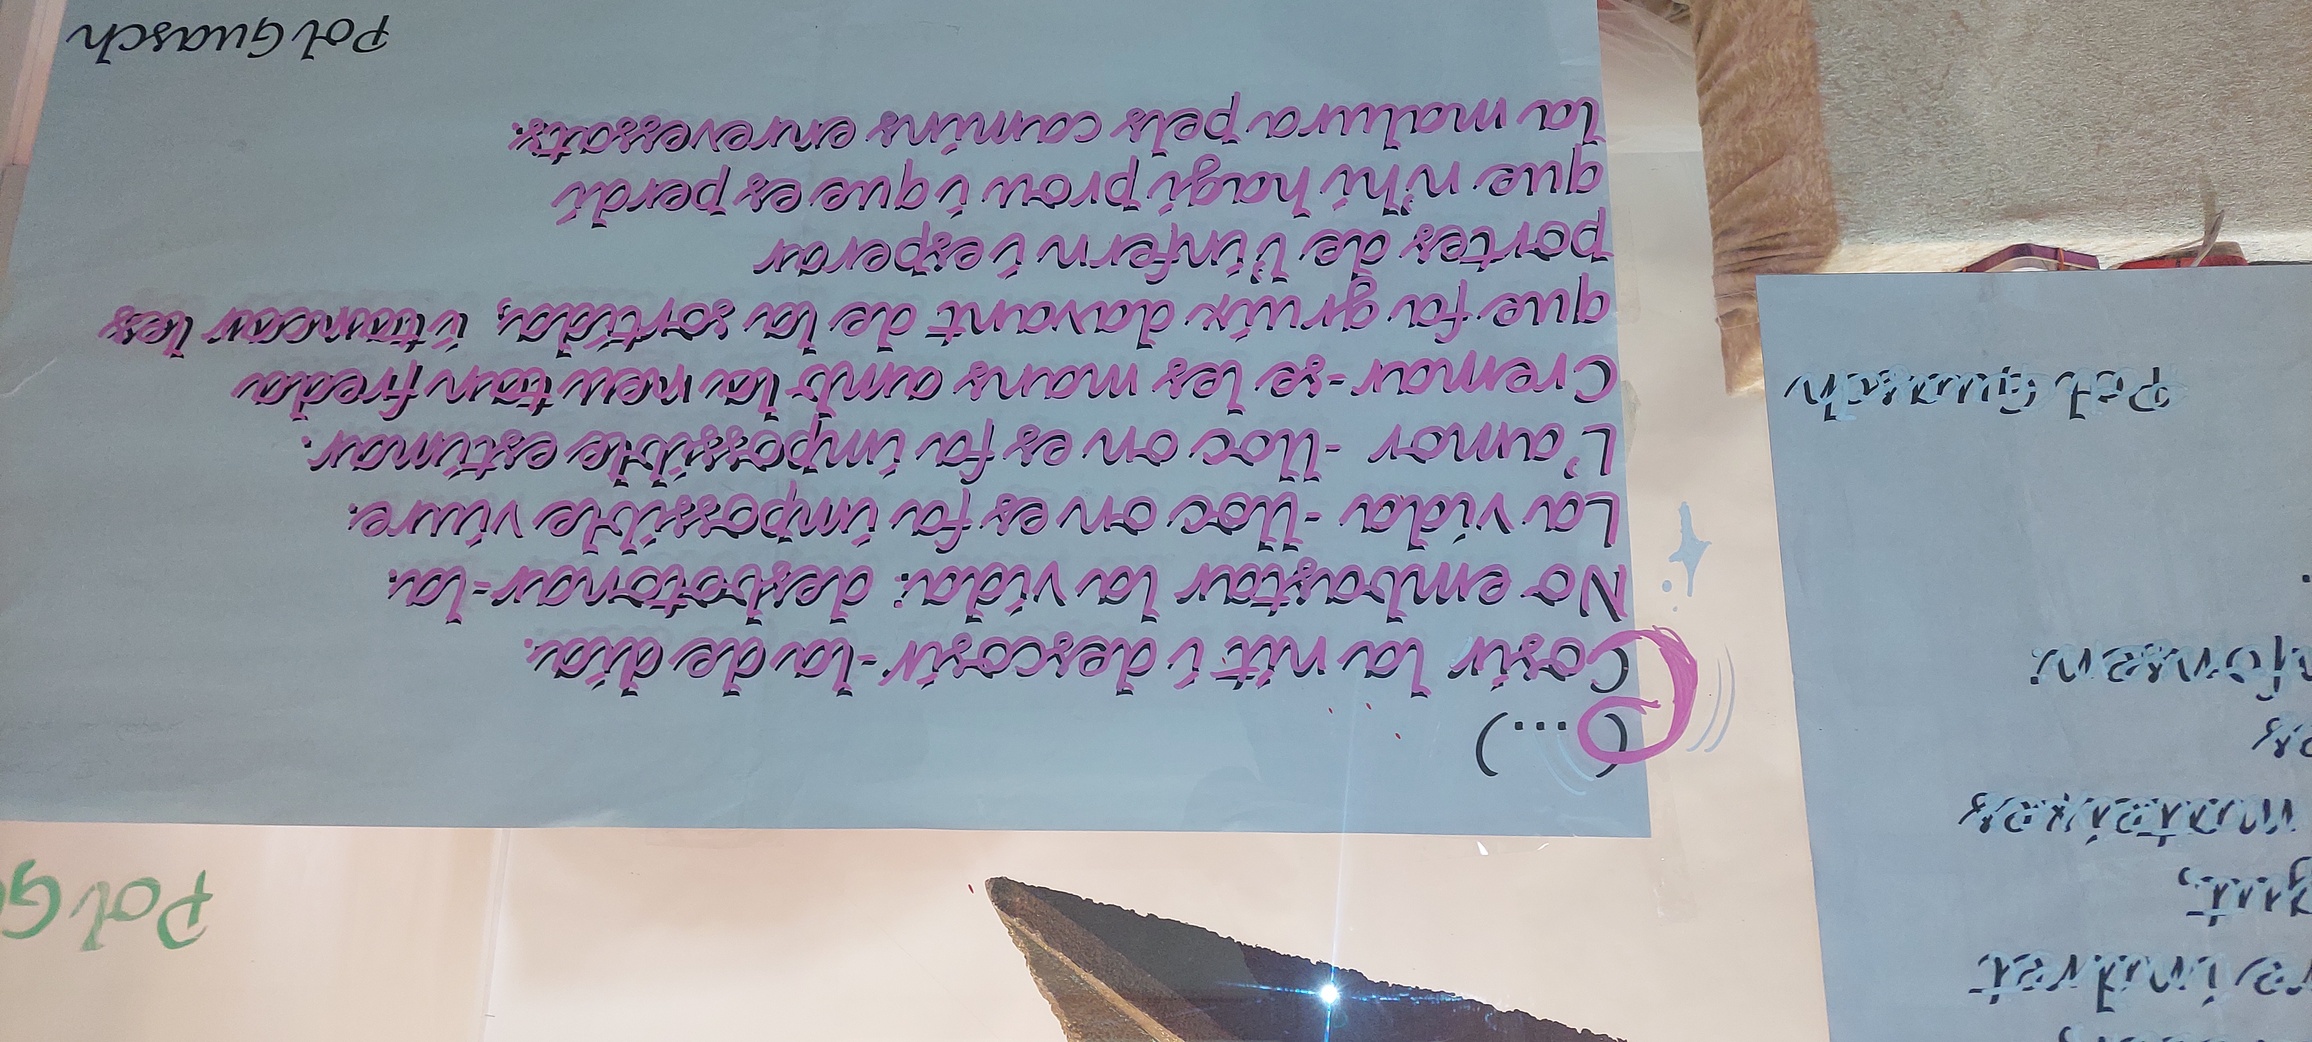 (...)
Cosir la nit i descosir-la de dia.
No embastar la vida: desbotonar-la.
La vida -lloc on es fa impossible viure.
L'amor -lloc on es fa impossible estimar.
Cremar-se les mans amb la neu tan freda
que fa gruix davant de la sortida, i tancar les
portes de l'infern i esperar
que n'hi hagi prou i que es perdi
la malura pels camins enrevessats.
Pol Guasch
Pol G
mateixes
Pol Guasch